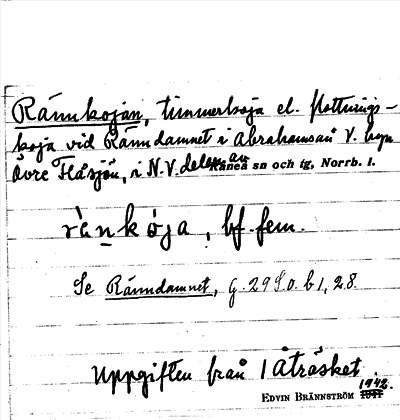 Rännkojan, timmerkoja el. flottnings-
koja vid Ränndamnet i Abrahamsån V. byn
Övre Flåsjön, i N.V. delen av Råneå sn och tg, Norrb. l.
rànkója, bf. fem.
Se Ränndamnet, G. 29 S.o. b 1, 28.
Uppgiften från 1 Åträsket.
1942
EDVIN BRÄNNSTRÖM